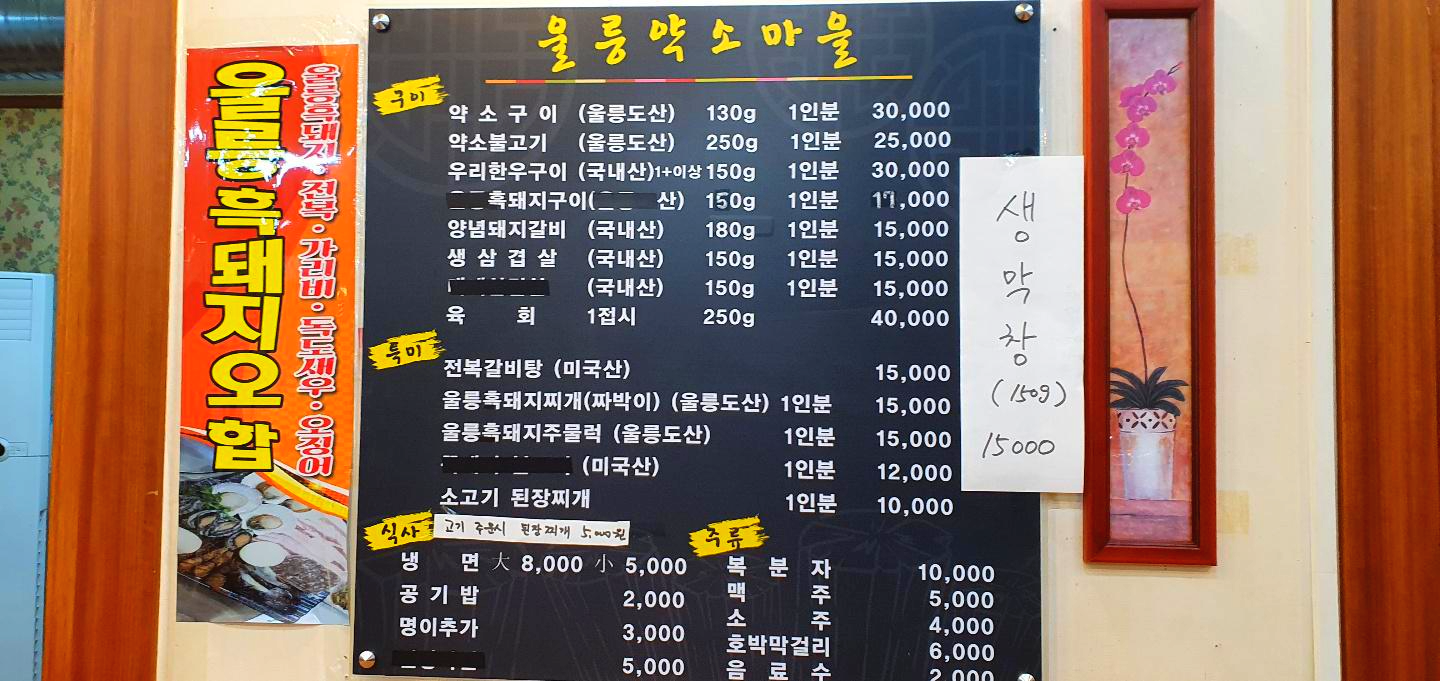 울릉약소마을
구이
약소구이 (울릉도산) 130g 1인분 30,000
약소불고기 (울릉도산) 250g 1인분 25,000
우리한우구이 (국내산)1+이상 150g 1인분 30,000
흑돼지구이( 산) 150g 1인분 ,000
양념돼지갈비 (국내산) 180g 1인분 15,000
생삼겹살 (국내산) 150g 1인분 15,000
(국내산) 150g 1인분 15,000
육회 1접시 250g 40,000
특미
전복갈비탕 (미국산) 15,000
울릉흑돼지찌개(짜박이) (울릉도산) 1인분 15,000
울릉흑돼지주물럭 (울릉도산) 1인분 15,000
(미국산) 1인분 12,000
소고기 된장찌개 1인분 10,000
식사 고기 주문시 된장찌개 5,000원
냉면 大 8,000 小 5,000
공기밥 2,000
명이추가 3,000
5,000
주류
복분자 10,000
맥주 5,000
소주 4,000
호박막걸리 6,000
음료수 2,000
울릉흑돼지오합
울릉흑돼지·전복·가리비·독도새우·오징어
생막창
(150g)
15000